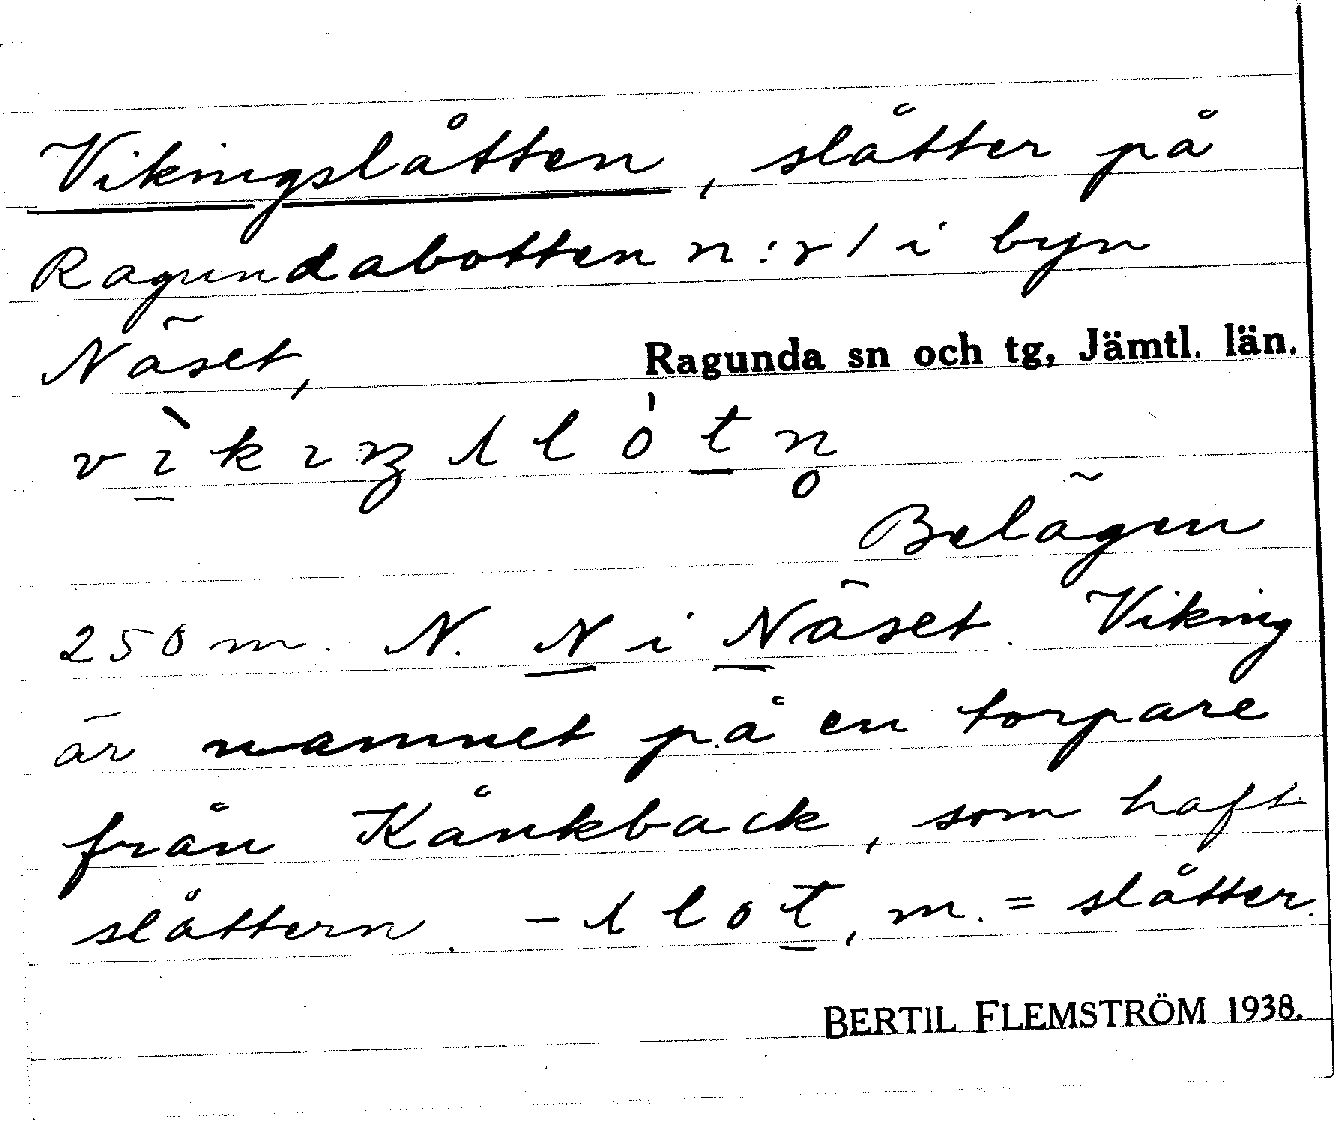 Vikingslåtten, slåtter på
Ragundabotten n:r 1 i byn
Näset, Ragunda sn och tg, Jämtl. län.
Belägen
250 m. N. N i Näset. Viking
är namnet på en torpare
från Kånkback, som haft
slåttern. - slot, m. = slåtter.
BERTIL FLEMSTRÖM 1938.